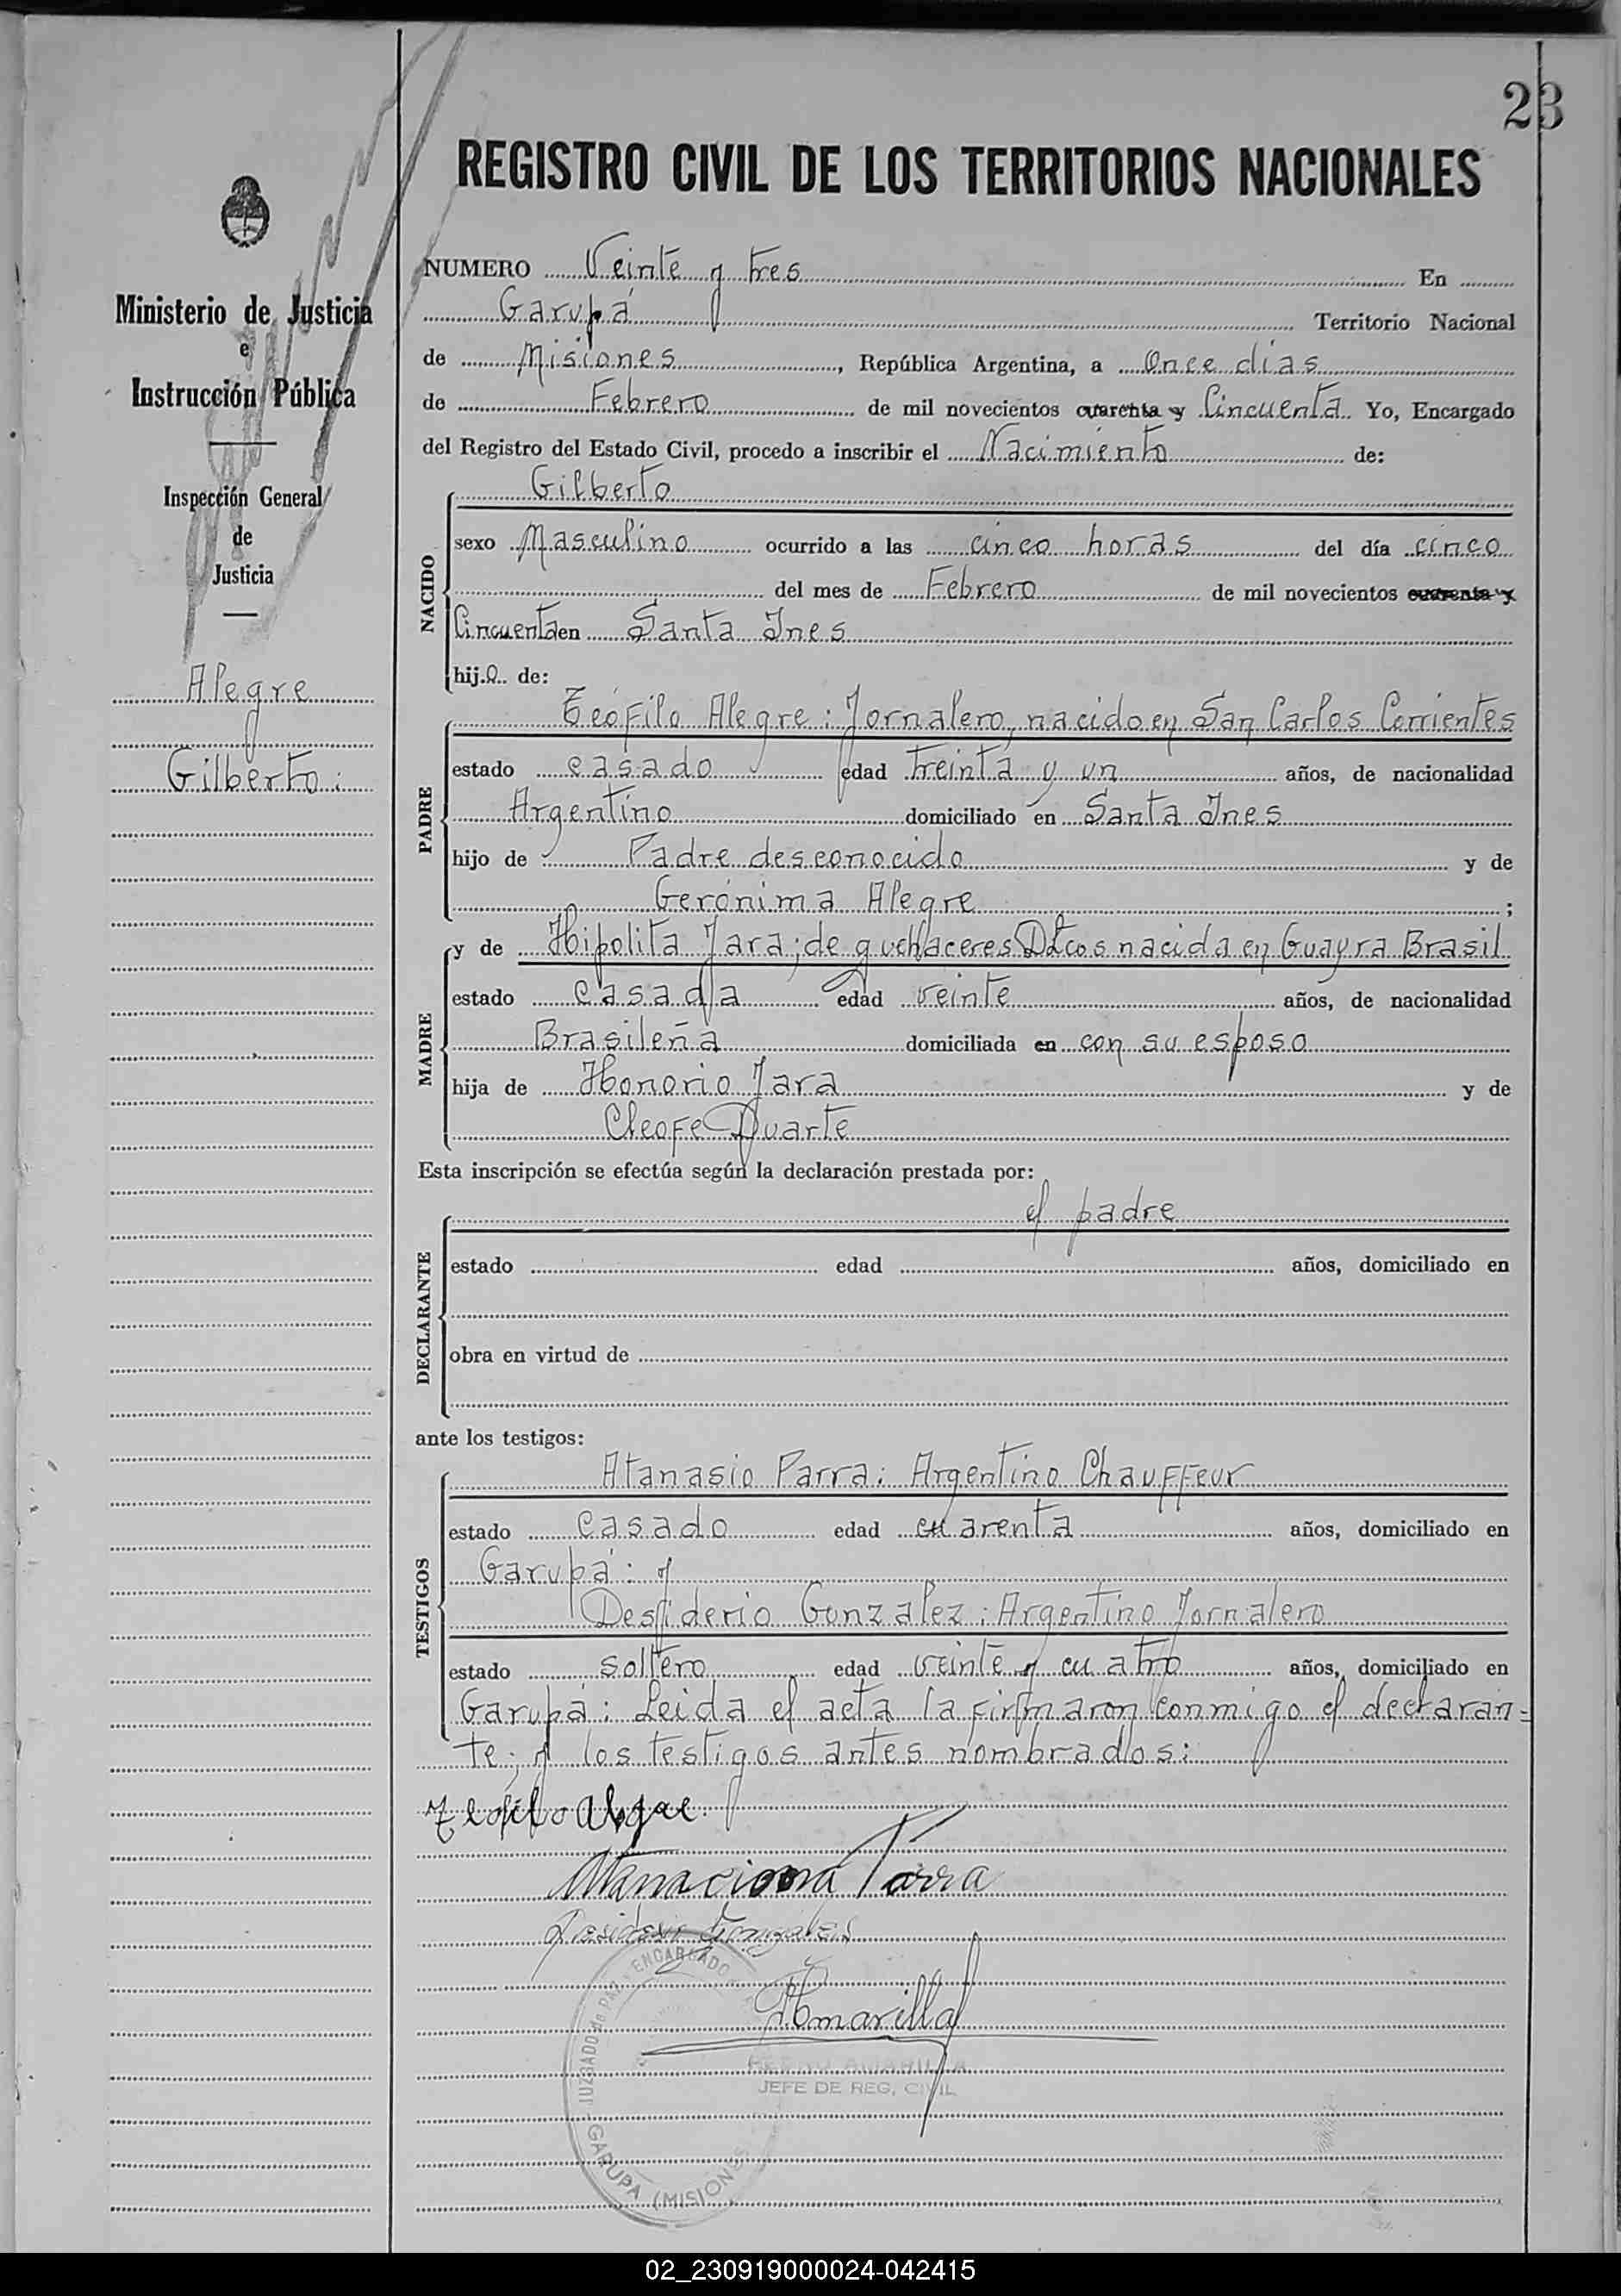 23
REGISTRO CIVIL DE LOS TERRITORIOS NACIONALES
Ministerio de Justicia
e
Instrucción Pública
Inspección General
de
Justicia
Alegre
Gilberto:
NUMERO Veinte y tres En
Garupá Territorio Nacional
de Misiones, República Argentina, a Once días
de Febrero de mil novecientos cuarenta y Cincuenta Yo, Encargado
del Registro del Estado Civil, procedo a inscribir el Nacimiento de:
NACIDO
Gilberto
sexo Masculino ocurrido a las cinco horas del día cinco
del mes de Febrero de mil novecientos cuarenta y
Cincuenta en Santa Ines
hijo de:
PADRE
Teófilo Alegre: Jornalero, nacido en San Carlos Corrientes
estado casado edad treinta y un años, de nacionalidad
Argentino domiciliado en Santa Ines
hijo de Padre desconocido y de
Gerónima Alegre ;
MADRE
y de Hipolita Jara; de quehaceres Dtcos nacida en Guayra Brasil
estado casada edad veinte años, de nacionalidad
Brasileña domiciliada en con su esposo
hija de Honorio Jara y de
Cleofe Duarte
Esta inscripción se efectúa según la declaración prestada por:
DECLARANTE
el padre
estado edad años, domiciliado en
obra en virtud de
ante los testigos:
TESTIGOS
Atanasio Parra: Argentino Chauffeur
estado casado edad cuarenta años, domiciliado en
Garupá: y
Desiderio Gonzalez: Argentino Jornalero
estado soltero edad veinte y cuatro años, domiciliado en
Garupá: Leida el acta la firmaron conmigo el declaran=
te; y los testigos antes nombrados:
Teofilo Alegre
Parra
Amarilla
JUZGADO de PAZ ENCARGADO
AMARILLA
JEFE DE REG. CIVIL
GARUPA (MISIONES
02_230919000024-042415